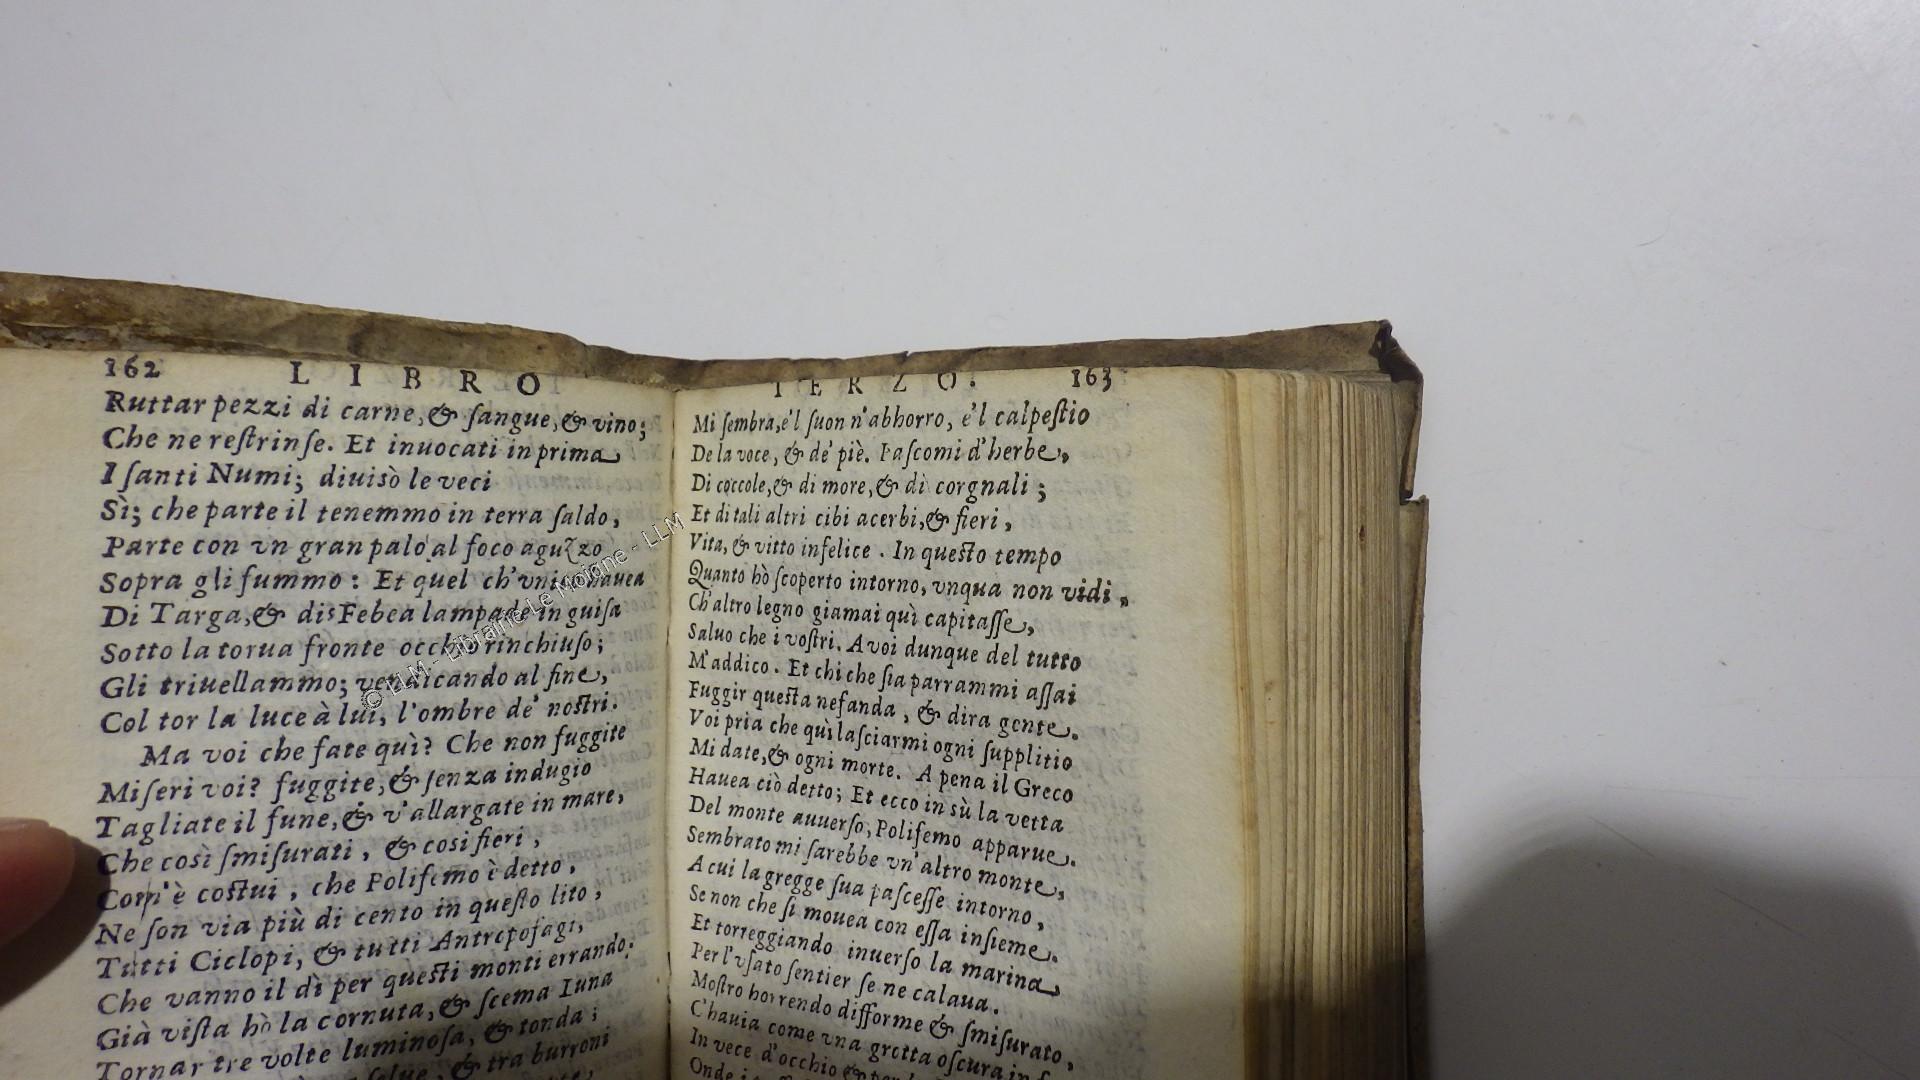 162 LIBRO
Ruttar pezzi di carne, & ſangue, & vino;
Che ne reſtrinſe. Et inuocati in prima
I ſanti Numi; diuisò le veci
Sì; che parte il tenemmo in terra ſaldo,
Parte con vn gran palo al foco aguzzo
Sopra gli fummo: Et quel ch'vnico hauea
Di Targa, & di Febea lampade in guiſa
Sotto la torua fronte occhio rinchiuſo;
Gli triuellammo; vendicando al fine,
Col tor la luce à lui, l'ombre de' noſtri.
Ma voi che fate quì? Che non fuggite
Miſeri voi? fuggite, & ſenza indugio
Tagliate il fune, & v'allargate in mare,
Che così ſmiſurati, & cosi fieri,
Com'è coſtui, che Polifemo è detto,
Ne ſon via più di cento in queſto lito,
Tutti Ciclopi, & tutti Antropofagi,
Che vanno il dì per queſti monti errando.
Già viſta hò la cornuta, & ſcema Luna
Tornar tre volte luminoſa, & tonda;
ſelue, & tra burroni
TERZO. 163
Mi ſembra, e'l ſuon n'abhorro, e'l calpeſtio
De la voce, & de' piè. Paſcomi d'herbe,
Di coccole, & di more, & di corgnali;
Et di tali altri cibi acerbi, & fieri,
Vita, & vitto infelice. In queſto tempo
Quanto hò ſcoperto intorno, vnqua non vidi,
Ch'altro legno giamai quì capitaſſe,
Saluo che i voſtri. A voi dunque del tutto
M'addico. Et chi che ſia parrammi aſſai
Fuggir queſta nefanda, & dira gente.
Voi pria che quì laſciarmi ogni ſupplitio
Mi date, & ogni morte. A pena il Greco
Hauea ciò detto; Et ecco in sù la vetta
Del monte auuerſo, Polifemo apparue.
Sembrato mi ſarebbe vn'altro monte,
A cui la gregge ſua paſceſſe intorno,
Se non che ſi mouea con eſſa inſieme.
Et torreggiando inuerſo la marina
Per l'vſato ſentier ſe ne calaua.
Moſtro horrendo difforme & ſmiſurato,
C'hauia come vna grotta oſcura in
In vece d'occhio &
Onde
© LLM - Librairie Le Moione - LLM